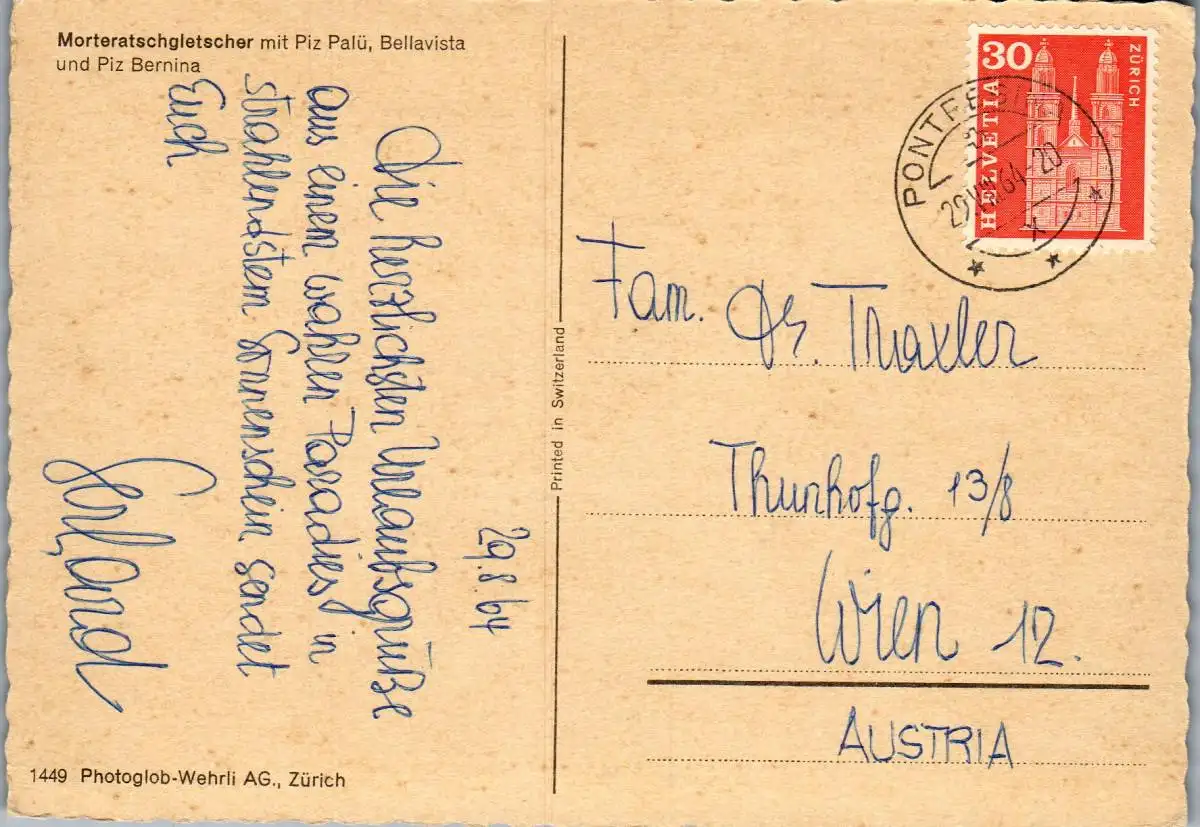 Morteratschgletscher mit Piz Palü, Bellavista
und Piz Bernina
29.8.64
Die herzlichsten Urlaubsgrüße
aus einem wahren Paradies in
strahlendstem Sonnenschein sendet
Euch
1449 Photoglob-Wehrli AG., Zürich
Printed in Switzerland
30
HELVETIA
ZÜRICH
PONTRESINA
29.VIII.64-20
Fam. Dr. Traxler
Thunhofg. 13/8
Wien 12.
AUSTRIA